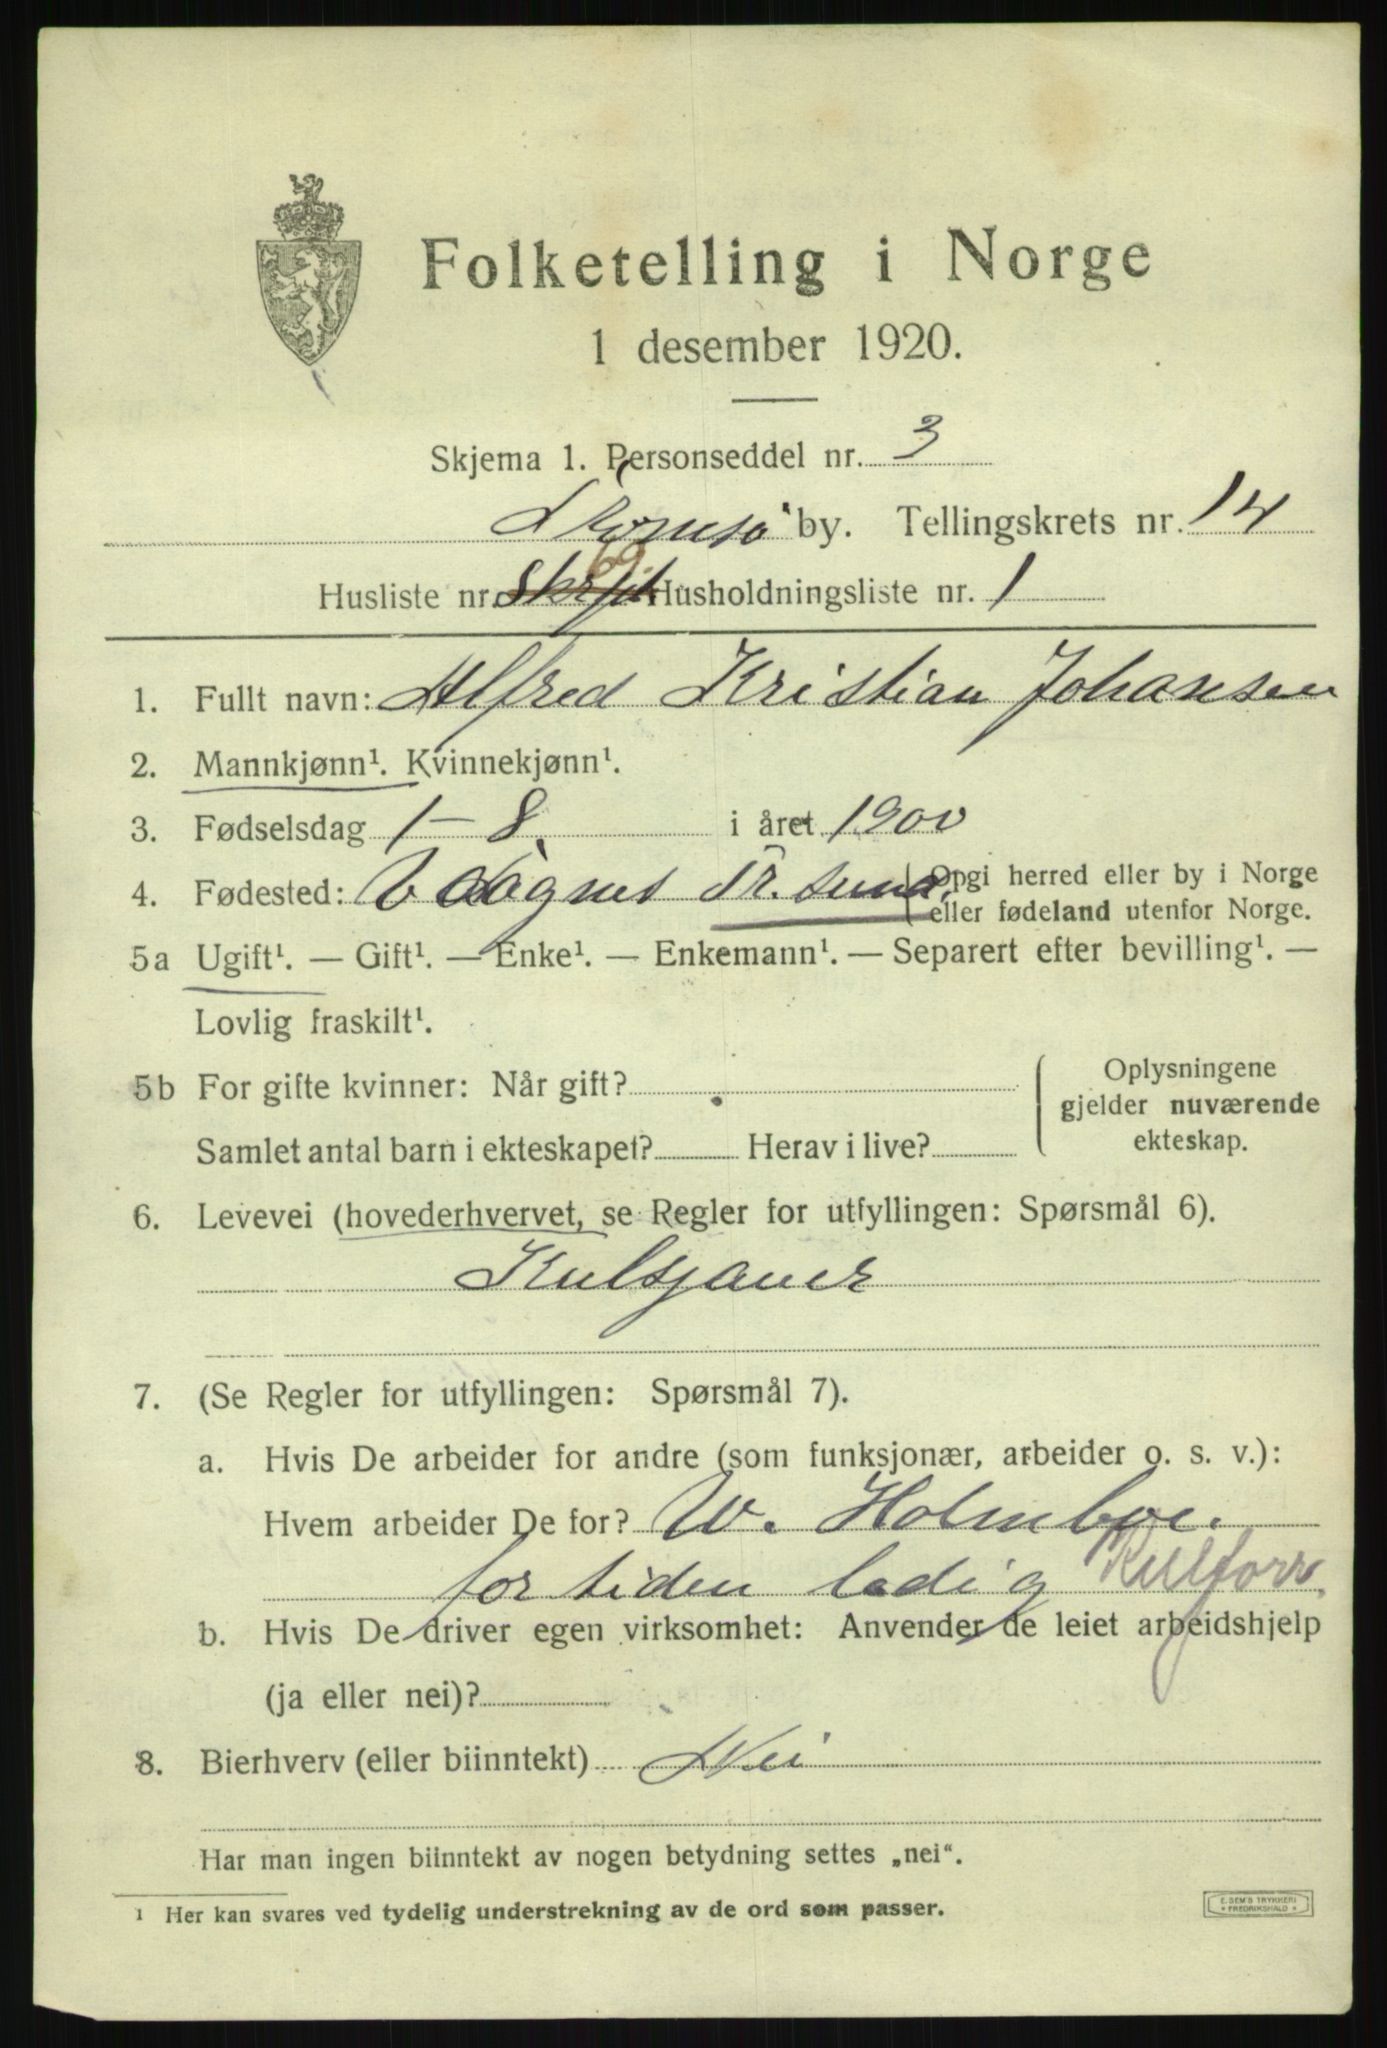 Folketelling i Norge
1 desember 1920.
Skjema 1. Personseddel nr. 3
Tromsø by. Tellingskrets nr. 14
Husliste nr. 69. Husholdningsliste nr. 1
1. Fullt navn: Alfred Kristian Johansen
2. Mannkjønn¹. Kvinnekjønn¹.
3. Fødselsdag 1-8. i året 1900
4. Fødested: Tr.sund. (Opgi herred eller by i Norge
eller fødeland utenfor Norge.
5a Ugift¹. — Gift¹. — Enke¹. — Enkemann¹. — Separert efter bevilling¹. —
Lovlig fraskilt¹.
5b For gifte kvinner: Når gift?
Samlet antal barn i ekteskapet? Herav i live?
Oplysningene
gjelder nuværende
ekteskap.
6. Levevei (hovederhvervet, se Regler for utfyllingen: Spørsmål 6).
Kulsjauer
7. (Se Regler for utfyllingen: Spørsmål 7).
a. Hvis De arbeider for andre (som funksjonær, arbeider o. s. v.):
Hvem arbeider De for? W. Holmboe.
for tiden ledig Kulforr.
b. Hvis De driver egen virksomhet: Anvender de leiet arbeidshjelp
(ja eller nei)?
8. Bierhverv (eller biinntekt) Nei
Har man ingen biinntekt av nogen betydning settes „nei“.
1 Her kan svares ved tydelig understrekning av de ord som passer.
E. SEM'S TRYKKERI
* FREDRIKSHALD *